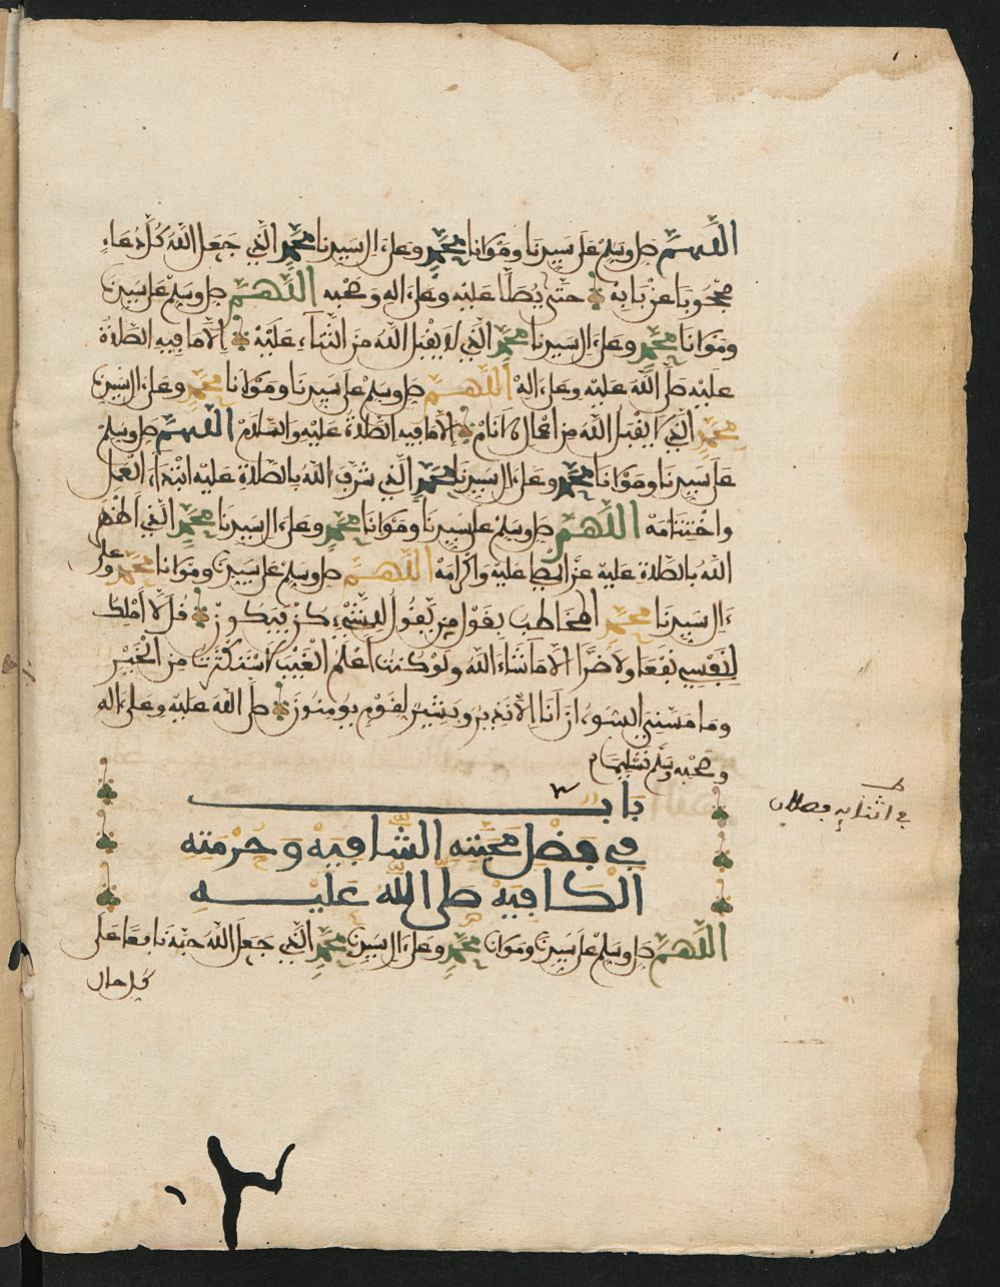 اللهم صل وسلم على سيدنا ومولانا محمد وعلى ءال سيدنا محمد الذي جعل الله كل دعاء
محجوبا عن بابه حتى يصلا عليه وعلى اله وصحبه اللهم صل وسلم على سيدنا
ومولانا محمد وعلى ءال سيدنا محمد الذي لا يقبل الله من الثناء عليه الا ما فيه الصلاة
عليه صلى الله عليه وعلى اله اللهم صل وسلم على سيدنا ومولانا محمد وعلى ءال سيدنا
محمد الذي لا يقبل الله من اعمال الانام الا ما فيه الصلاة عليه والسلام اللهم صل وسلم
على سيدنا ومولانا محمد وعلى ءال سيدنا محمد الذي شرف الله بالصلاة عليه ابتداء العمل
واختتامه اللهم صل وسلم على سيدنا ومولانا محمد وعلى ءال سيدنا محمد الذي
الله بالصلاة عليه عز عليه واكرامه اللهم صل وسلم على سيدنا ومولانا محمد وعلى
ءال سيدنا محمد المخاطب بقول من يقول للشيء كن فيكون قل لا أملك
لنفسي نفعا ولا ضرا الا ما شاء الله ولو كنت أعلم الغيب لاستكثرت من الخير
وما مسني السوء ان انا الا نذير وبشير لقوم يومنون صلى الله عليه وعلى اله
وصحبه وسلم تسليما
باب
في فضل محبته الشافية وحرمته
الكافية صلى الله عليه
اللهم صل وسلم على سيدنا ومولانا محمد وعلى ءال سيدنا محمد الذي جعل الله حبه نافعا على
كل حال